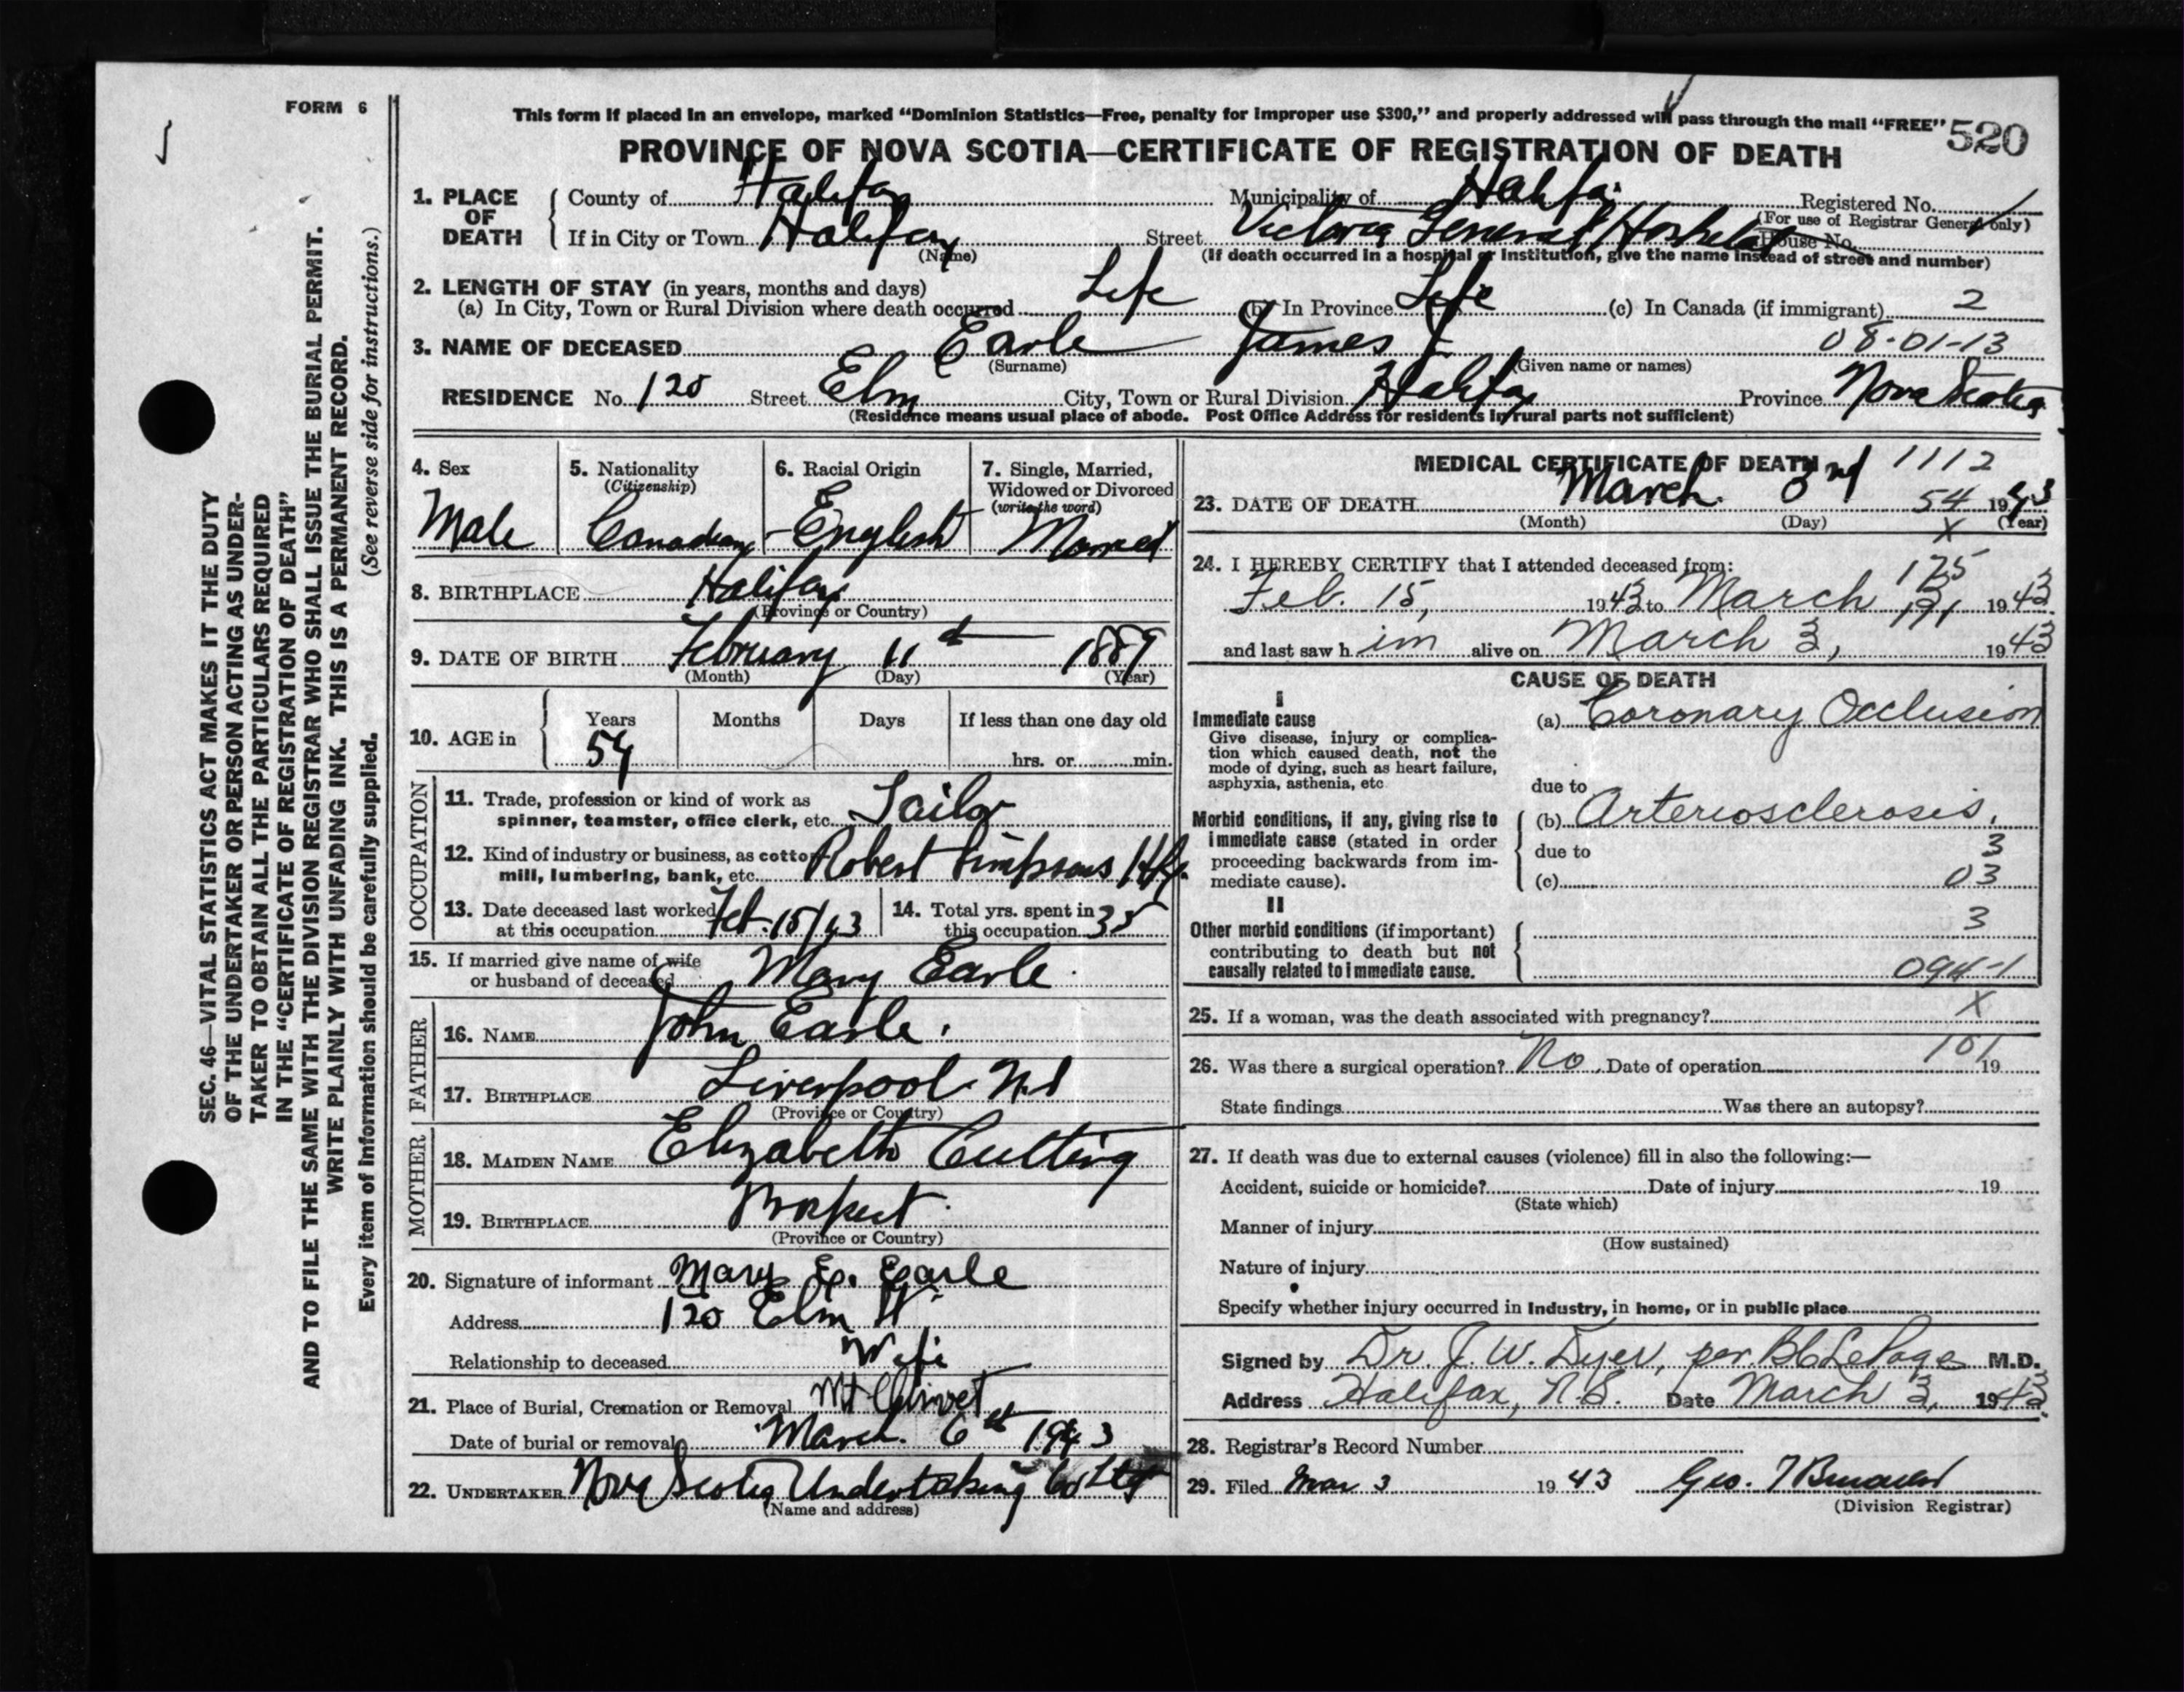 FORM 6
This form if placed in an envelope, marked "Dominion Statistics—Free, penalty for improper use $300," and properly addressed will pass through the mail "FREE" 520
PROVINCE OF NOVA SCOTIA—CERTIFICATE OF REGISTRATION OF DEATH
1. PLACE OF DEATH County of Halifax Municipality of Halifax Registered No.
(For use of Registrar General only)
If in City or Town Halifax Street Victoria General Hospital House No.
(Name) (If death occurred in a hospital or institution, give the name instead of street and number)
2. LENGTH OF STAY (in years, months and days)
(a) In City, Town or Rural Division where death occurred Life (b) In Province Life (c) In Canada (if immigrant) 2
3. NAME OF DECEASED Earle James 08-01-13
(Surname) (Given name or names)
RESIDENCE No. 120 Street Elm City, Town or Rural Division Halifax Province Nova Scotia
(Residence means usual place of abode. Post Office Address for residents in rural parts not sufficient)
4. Sex Male
5. Nationality (Citizenship) Canadian
6. Racial Origin English
7. Single, Married, Widowed or Divorced (write the word) Married
8. BIRTHPLACE Halifax
(Province or Country)
9. DATE OF BIRTH February 11th 1889
(Month) (Day) (Year)
10. AGE in Years Months Days If less than one day old
54 hrs. or min.
OCCUPATION
11. Trade, profession or kind of work as spinner, teamster, office clerk, etc. Tailor
12. Kind of industry or business, as cotton mill, lumbering, bank, etc. Robert Simpsons Hfx.
13. Date deceased last worked at this occupation Feb. 15/43
14. Total yrs. spent in this occupation 35
15. If married give name of wife or husband of deceased Mary Earle
FATHER
16. NAME John Earle
17. BIRTHPLACE Liverpool N.S
(Province or Country)
MOTHER
18. MAIDEN NAME Elizabeth Cutting
19. BIRTHPLACE
(Province or Country)
20. Signature of informant Mary E. Earle
Address 120 Elm St
Relationship to deceased Wife
21. Place of Burial, Cremation or Removal Mt Olivet
Date of burial or removal March 6th 1943
22. UNDERTAKER Nova Scotia Undertaking Co Ltd
(Name and address)
MEDICAL CERTIFICATE OF DEATH 1112
23. DATE OF DEATH March 3rd 54 1943
(Month) (Day) X (Year)
24. I HEREBY CERTIFY that I attended deceased from: 175
Feb. 15, 1943 to March 1943
and last saw him alive on March 3, 1943
CAUSE OF DEATH
I
Immediate cause
Give disease, injury or complication which caused death, not the mode of dying, such as heart failure, asphyxia, asthenia, etc
(a) Coronary Occlusion
due to
Morbid conditions, if any, giving rise to immediate cause (stated in order proceeding backwards from immediate cause).
(b) Arteriosclerosis.
due to 3
(c) 03
II
Other morbid conditions (if important) contributing to death but not causally related to immediate cause.
3
094-1
25. If a woman, was the death associated with pregnancy? X
26. Was there a surgical operation? No. Date of operation 101 19
State findings Was there an autopsy?
27. If death was due to external causes (violence) fill in also the following:—
Accident, suicide or homicide? Date of injury 19
(State which)
Manner of injury
(How sustained)
Nature of injury
Specify whether injury occurred in industry, in home, or in public place
Signed by Dr. J. W. Dyer, per. B C LePage M.D.
Address Halifax, N.S. Date March 3, 1943
28. Registrar's Record Number
29. Filed Mar 3 1943 Geo.
(Division Registrar)
SEC. 46—VITAL STATISTICS ACT MAKES IT THE DUTY
OF THE UNDERTAKER OR PERSON ACTING AS UNDER-
TAKER TO OBTAIN ALL THE PARTICULARS REQUIRED
IN THE "CERTIFICATE OF REGISTRATION OF DEATH"
AND TO FILE THE SAME WITH THE DIVISION REGISTRAR WHO SHALL ISSUE THE BURIAL PERMIT.
WRITE PLAINLY WITH UNFADING INK. THIS IS A PERMANENT RECORD.
Every item of information should be carefully supplied. (See reverse side for instructions.)